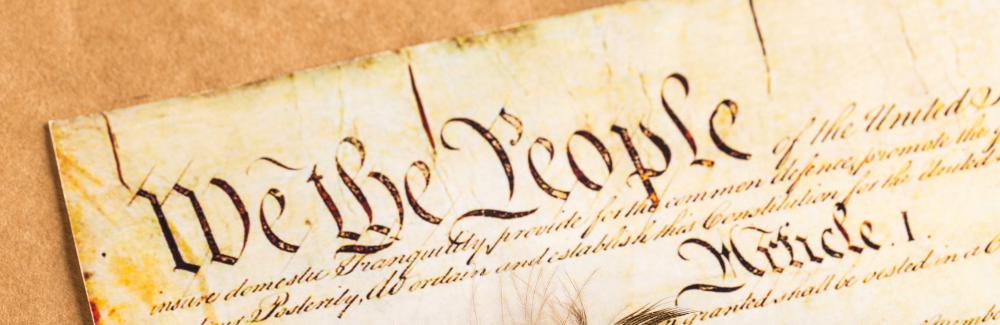 We the People of the United
insure domestic Tranquility, provide for the common defence, promote the
Posterity, do ordain and establish this Constitution for the United
Article. I.
granted shall be vested in a